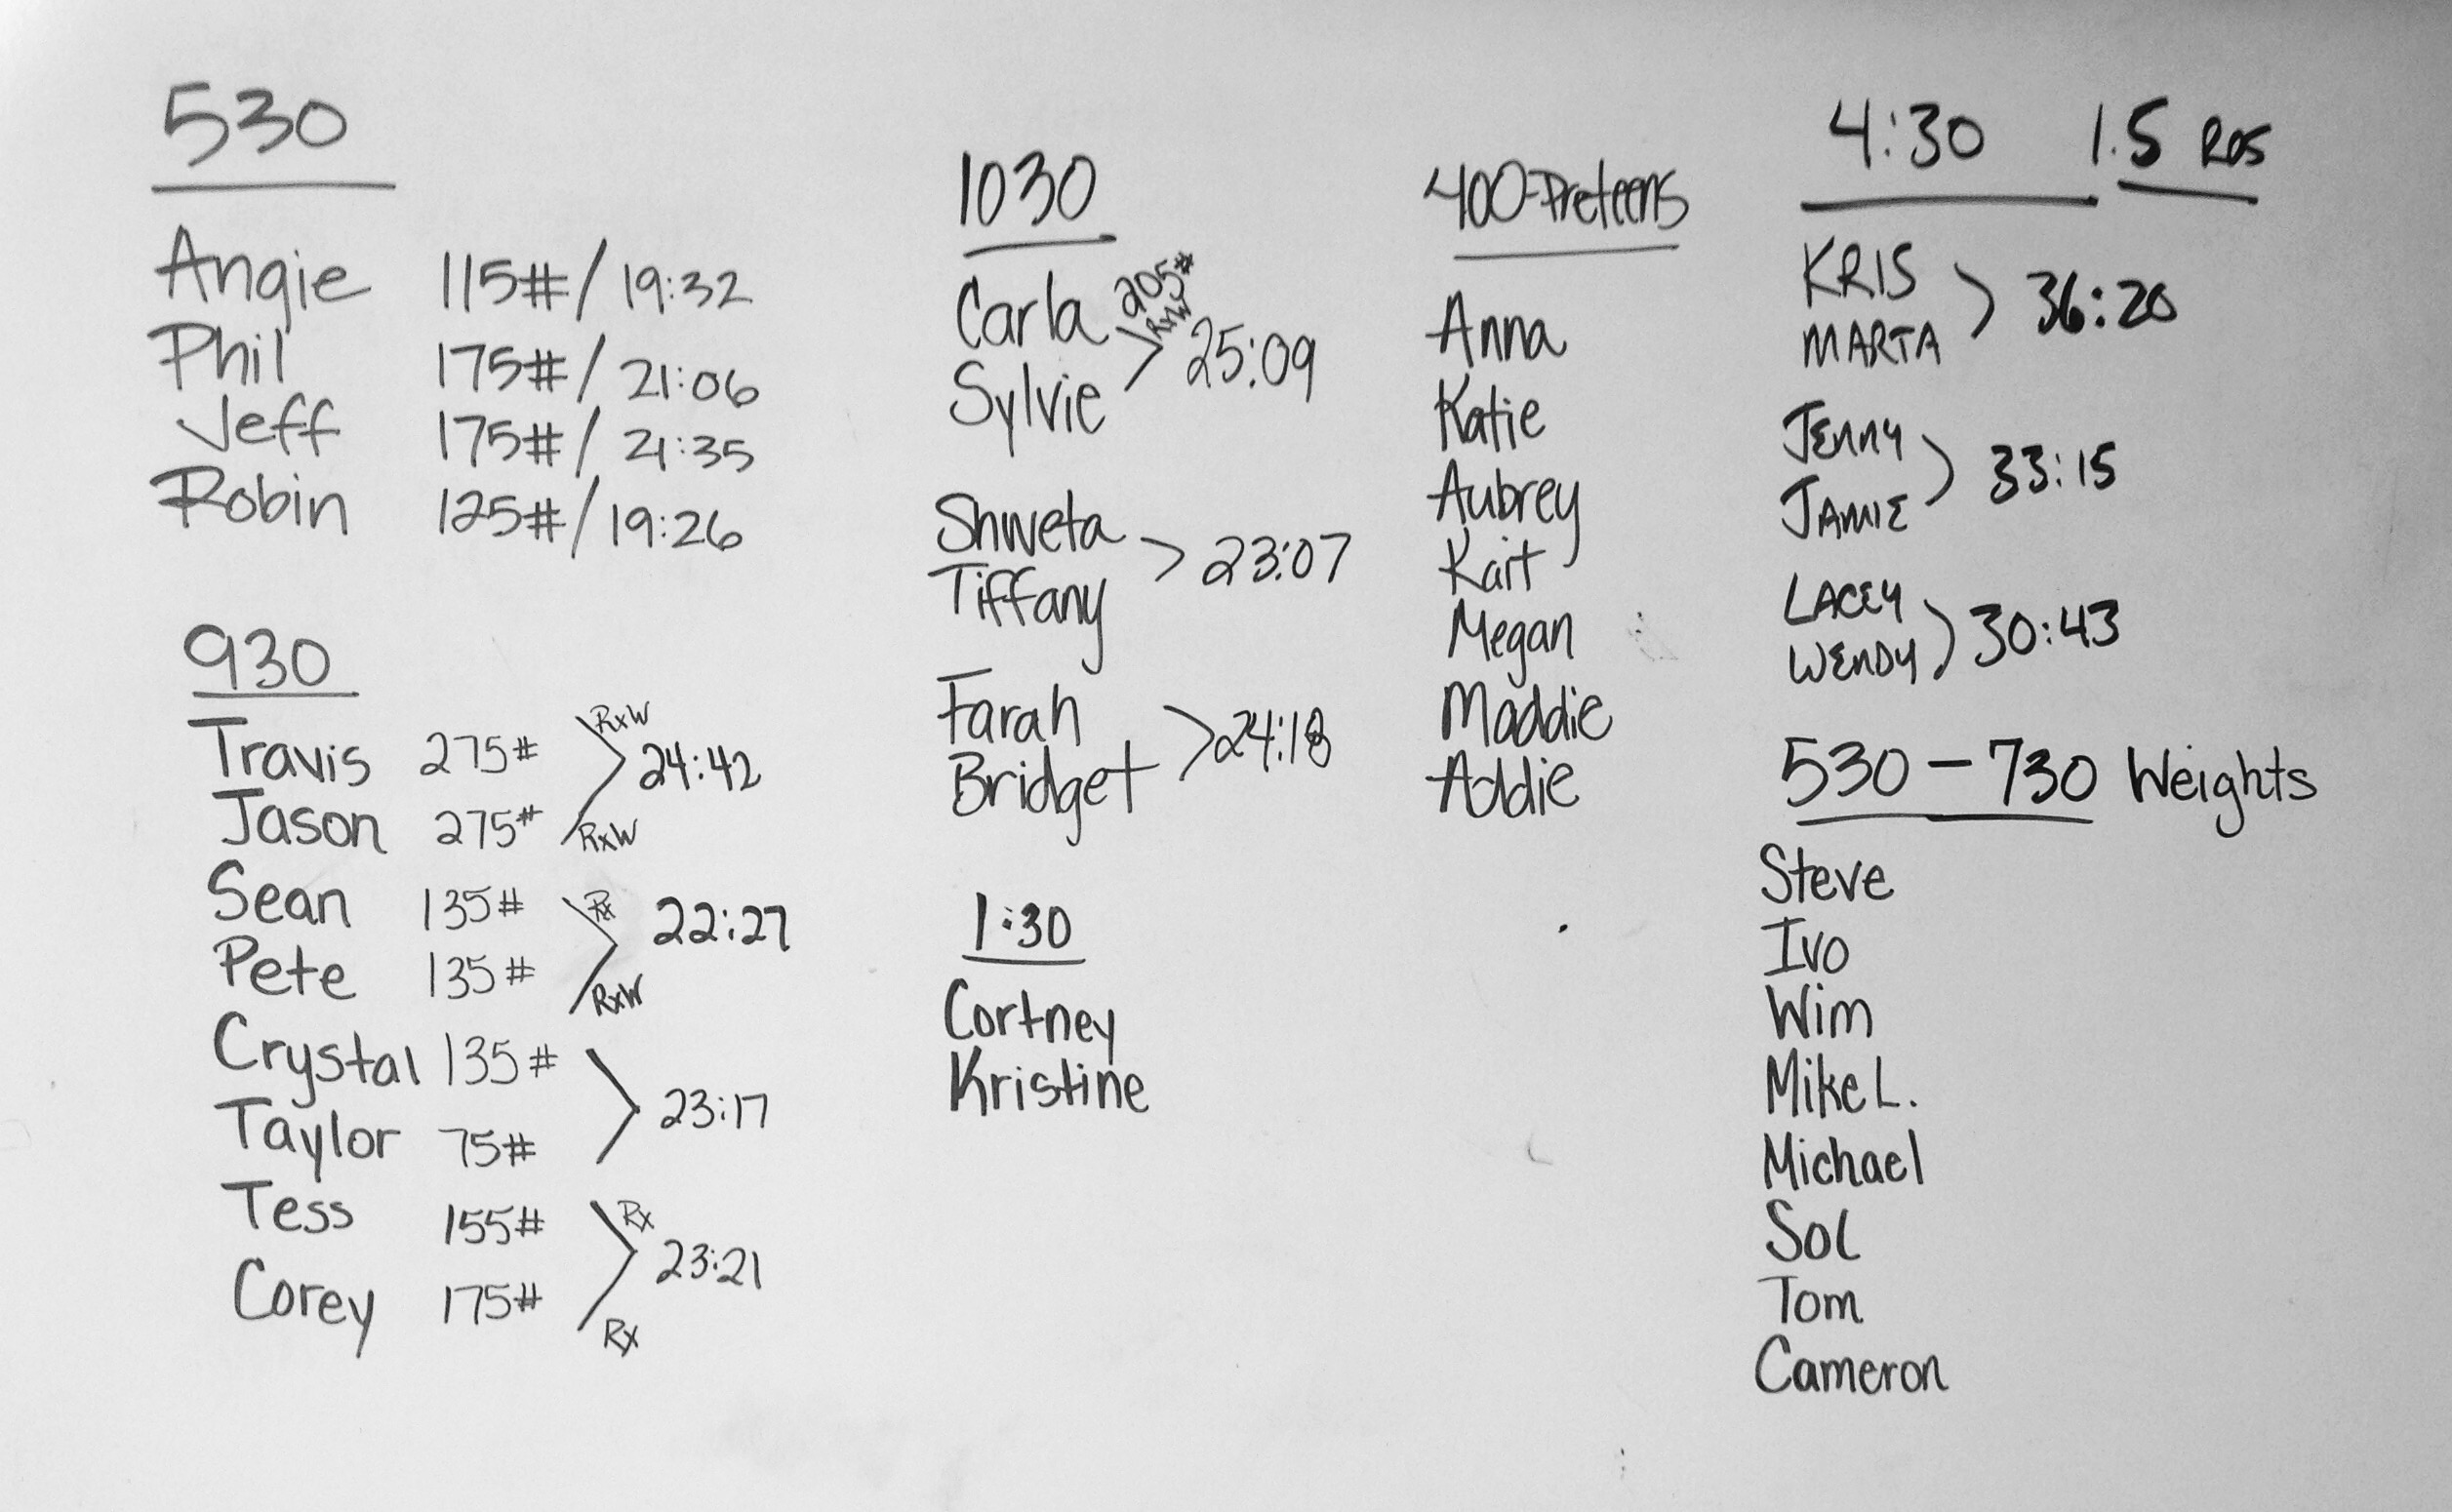 530
Angie 115#/ 19:32
Phil 175#/ 21:06
Jeff 175#/ 21:35
Robin 125#/ 19:26
930
Travis 275# RxW
24:42
Jason 275# RxW
Sean 135# Rx
22:27
Pete 135# RxW
Crystal 135#
23:17
Taylor 75#
Tess 155# Rx
23:21
Corey 175# Rx
1030
Carla 205# RxW
> 25:09
Sylvie
Shweta
> 23:07
Tiffany
Farah
> 24:18
Bridget
1:30
Cortney
Kristine
400-Preteens
Anna
Katie
Aubrey
Kait
Megan
Maddie
Addie
4:30 1.5 RDS
KRIS
) 36:20
MARTA
JENNY
) 33:15
JAMIE
LACEY
) 30:43
WENDY
530 - 730 Weights
Steve
Ivo
Wim
Mike L.
Michael
Sol
Tom
Cameron